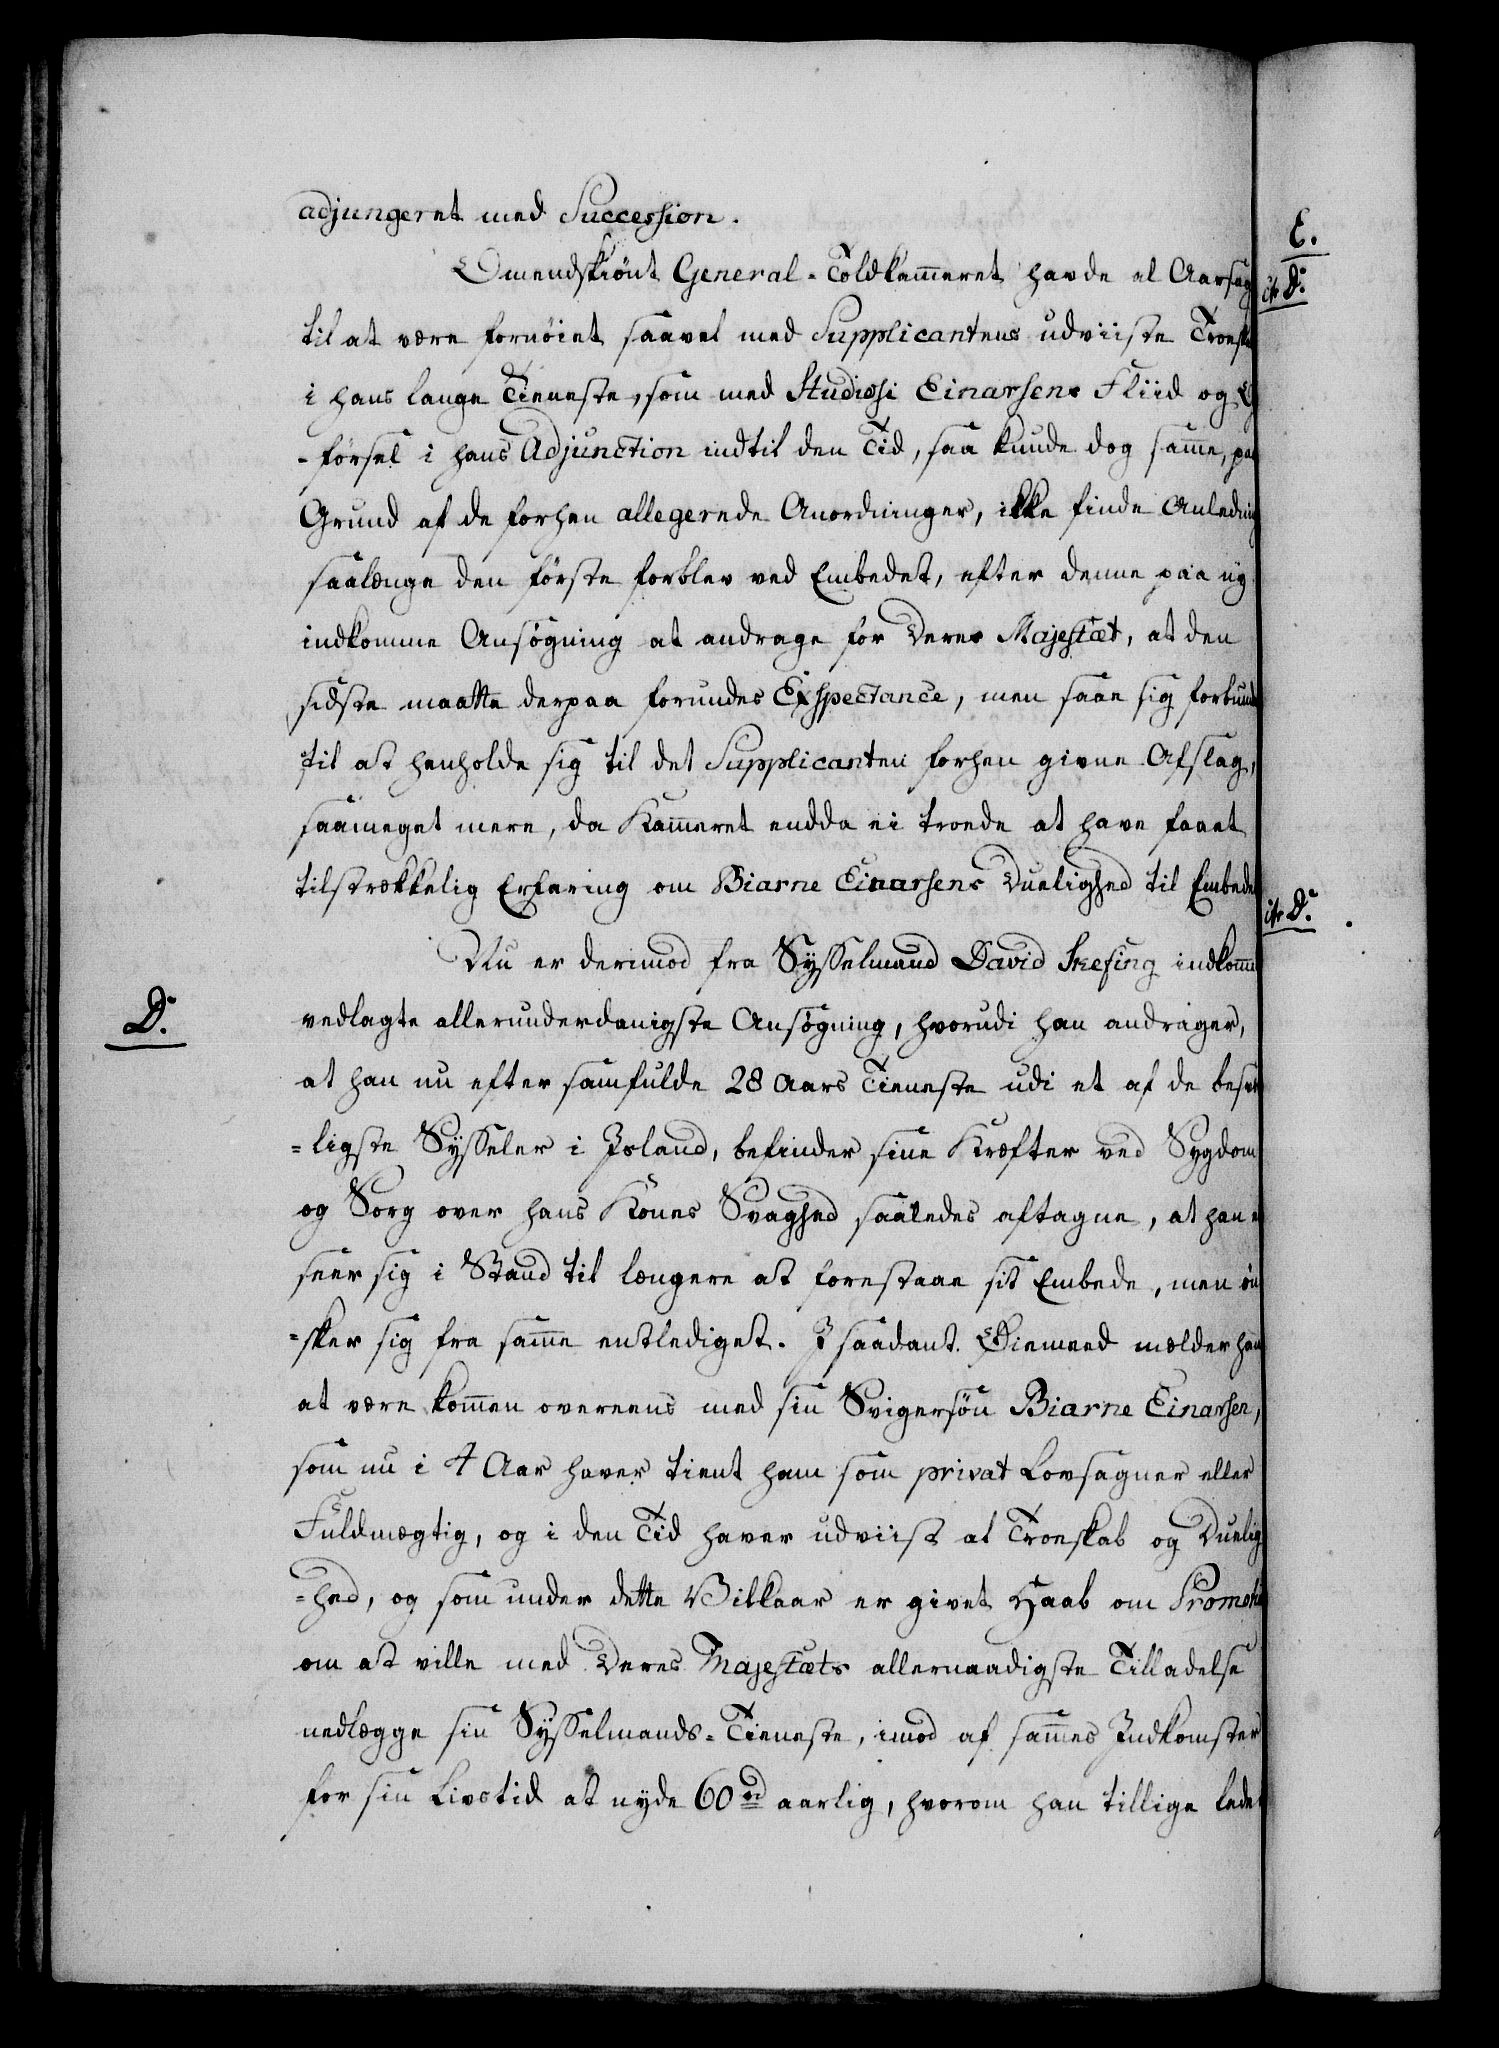 adjungeret med Succession.
Omendskiönt General-Toldkam̅eret havde al Aarsag
til at være fornöiet saavel med Supplicantens udviiste Troesk
i hans lange Tieneste, som med Studiosi Einarsens Fliid og
-försel i hans Adjunction indtil den Tid, saa kunde dog sam̅e, paa
Grund af de forhen allegerede Anordninger, ikke finde Anledning
saalænge den förste forblev ved Embedet, efter denne paa ny
indkomne Ansögning at andrage for Deres Majestæt, at den
sidste maatte derpaa forundes Exspectance, men saae sig forbunde
til at henholde sig til det Supplicanten forhen givne Afslag,
saameget mere, da Kam̅eret endda ei troede at have faaet
tilstrækkelig Erfaring om Biarne Einarsens Duelighed til Embede
Nu er derimod fra Sysselmand David Skefing indkom̅e
D.
vedlagte allerunderdanigste Ansögning, hvorudi han andrager,
at han nu efter samfulde 28 Aars Tieneste udi et af de besvær
=ligste Sysseler i Island, befinder sine Kræfter ved Sygdom
og Sorg over hans Kones Svaghed saaledes aftagne, at han ei
seer sig i Stand til længere at forestaae sit Embede, men ön
=sker sig fra sam̅e entlediget. I saadant Öiemeed melder han
at være kom̅en overeens med sin Svigersön Biarne Einarsen,
som nu i 4 Aar haver tient ham som privat Lovsagner eller
Fuldmægtig, og i den Tid haver udviist al Troeskab og Duelig
=hed, og som under dette Vilkaar er givet Haab om Promoti
om at ville med Deres Majestæts allernaadigste Tilladelse
nedlægge sin Sysselmands=Tieneste, imod af sam̅es Indkomster
for sin Livstid at nyde 60 rd aarlig, hvorom han tillige lede
E.
it D.
it D.